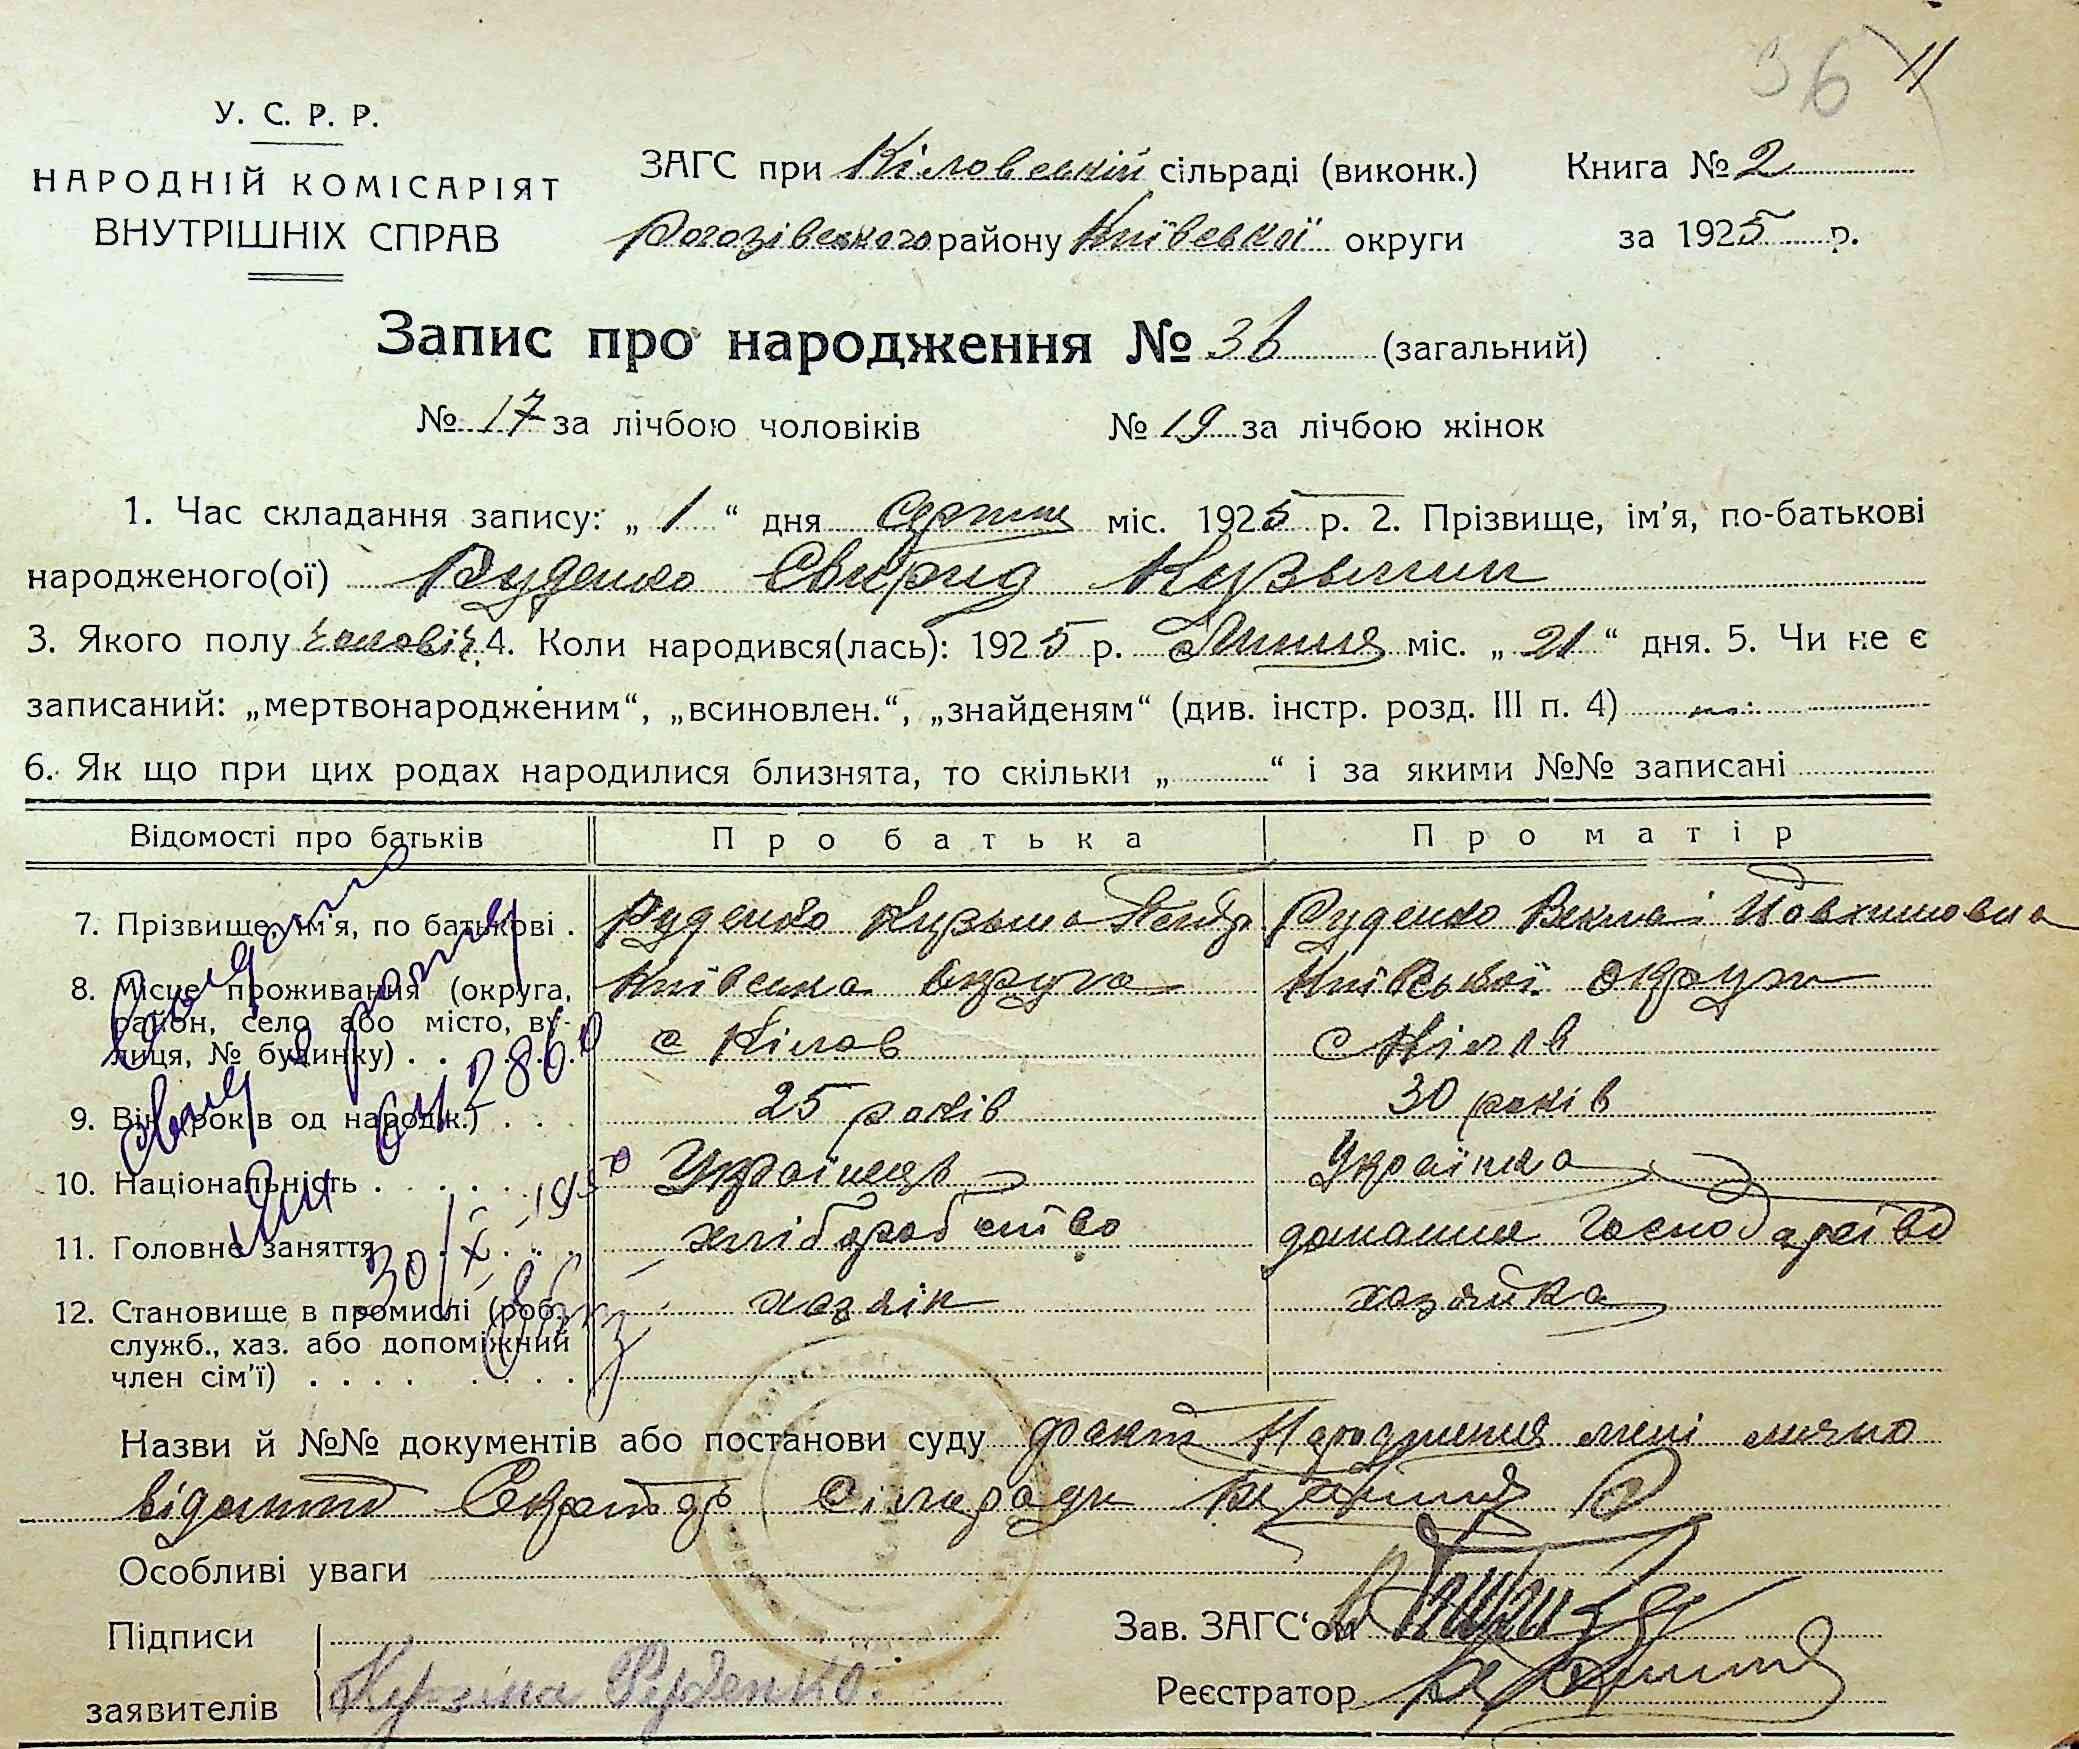 36 11
У. С. Р. Р.
НАРОДНІЙ КОМІСАРІЯТ
ВНУТРІШНІХ СПРАВ
ЗАГС при Кіловській сільраді (виконк.) Книга № 2
Рогозівського району Київської округи за 1925 р.
Запис про народження № 36 (загальний)
№ 17 за лічбою чоловіків № 19 за лічбою жінок
1. Час складання запису: „ 1 “ дня серпня міс. 1925 р. 2. Прізвище, ім'я, по-батькові
народженого(ої) Руденко Свирид Кузьмин
3. Якого полу чоловіч. 4. Коли народився(лась): 1925 р. Липня міс. „ 21 “ дня. 5. Чи не є
записаний: „мертвонародженим“, „всиновлен.“, „знайденям“ (див. інстр. розд. III п. 4)
6. Як що при цих родах народилися близнята, то скільки „ “ і за якими №№ записані
Відомості про батьків Про батька Про матір
7. Прізвище, ім'я, по батькові . Руденко Кузьма Руденко Векла Йовхимовна
8. Місце проживання (округа, район, село або місто, вулиця, № будинку) . . . Київська округа Київської округи
с Кілов с Кілов
9. Вік (років од народж.) . . 25 років 30 років
10. Національність . . . . Українець Українка
11. Головне заняття . . . . хліборобство домашнє господарство
12. Становище в промислі (роб., хазяїн хазяйка
служб., хаз. або допоміжний
член сім'ї) . . . . . . . .
Видано
свид о рожд
641286
30/X 1950
Назви й №№ документів або постанови суду факт Народження мені лично
відомий Секретарь Сілради
Особливі уваги
Підписи
заявителів Кузьма Руденко.
Зав. ЗАГС‘ом
Реєстратор